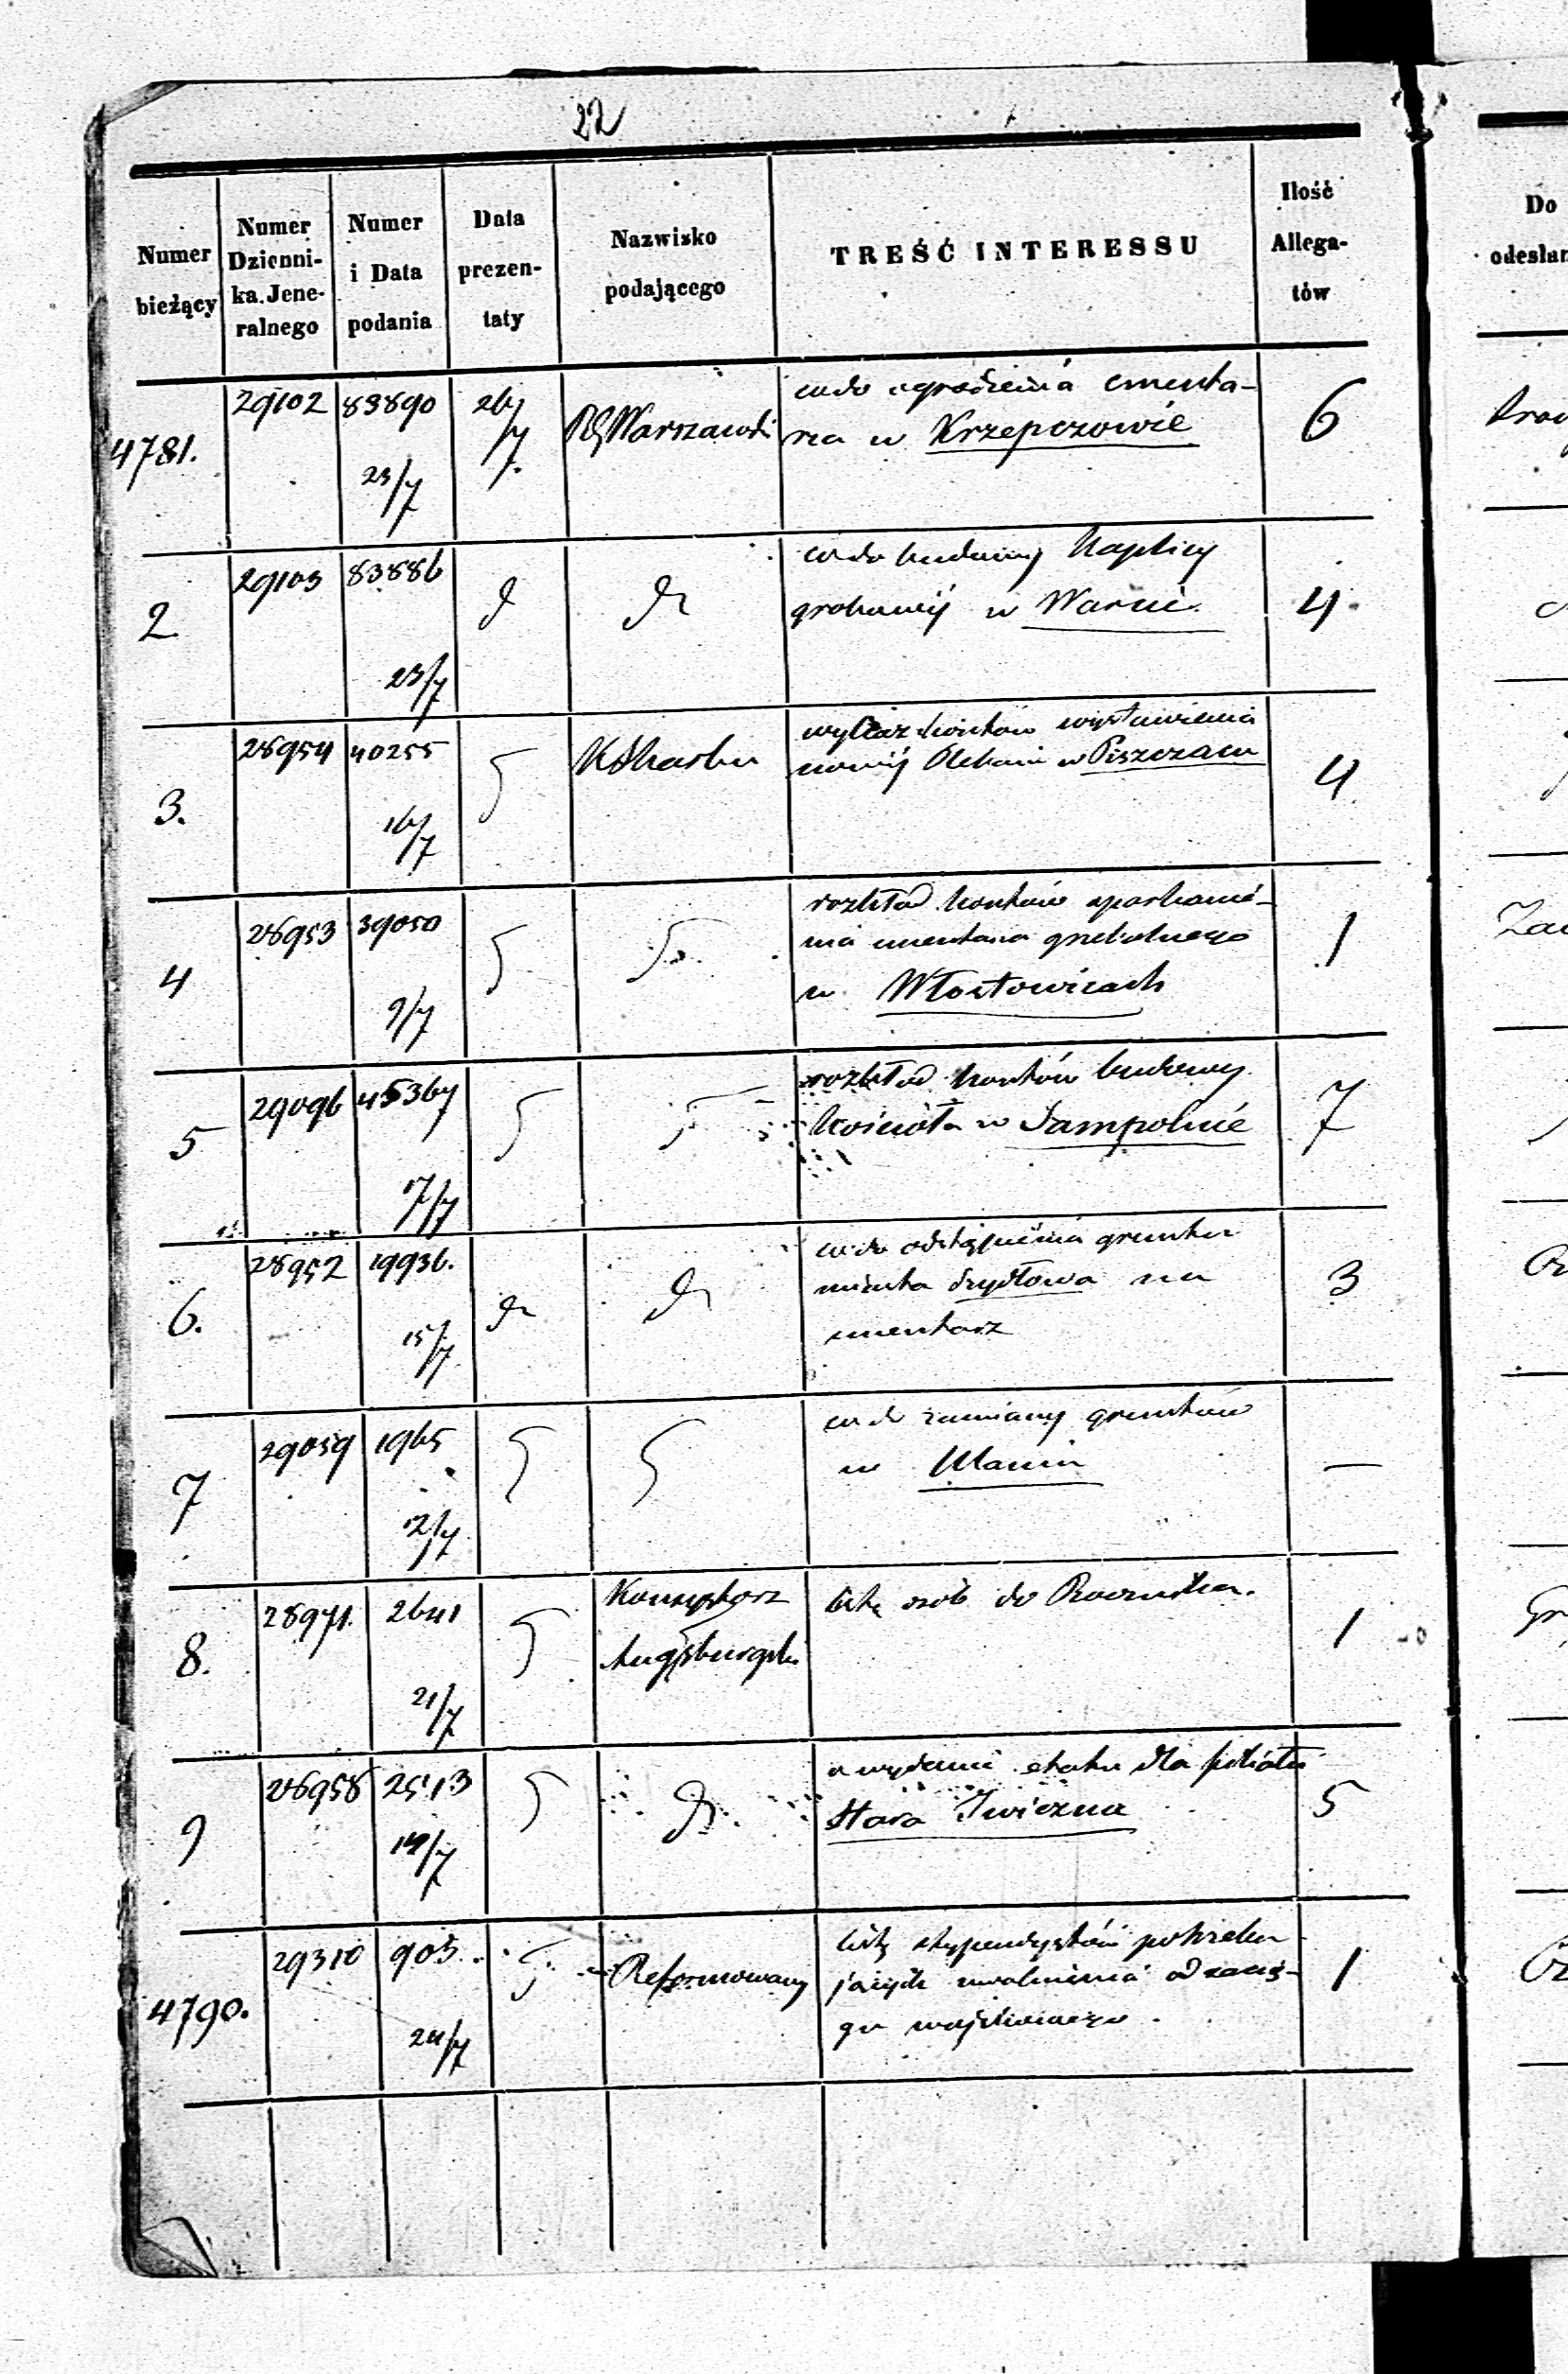 22
Numer bieżący | Numer Dzienni-ka Jene-ralnego | Numer i Data podania | Data prezen-taty | Nazwisko podającego | TREŚĆ INTERESSU | Ilość Allega-tów | Do
4781. | 29102 | 83890 23/7 | 26/7. | RG Warszawski | co do ogrodzenia cmenta-
rza w Krzepczowie | 6
2 | 29103 | 83886 23/7 | d | do | co do budowy Kaplicy
grobowej w Warcie | 4
3. | 28954 | 40255 16/7 | K Skarbu | wykaz kosztów wystawienia
nowej Plebanii w Piszczacu | 4
4 | 28953 | 39050 9/7 | rozkład kosztów oparkanie-
nia cmentarza grzebalnego
w Włostowicach | 1
5 | 29096 | 45367 17/7 | rozkład kosztów budowy
Kościoła w Sampolnie | 7
6. | 28952 | 19936. 15/7 | do | do | co do odstąpienia gruntu
miasta Szydłowa na
cmentarz | 3
7 | 29059 | 1965 12/7 | co do zamiany gruntów
w | —
8. | 28971. | 2641 21/7 | Konsystorz
Augsburgski | listę osób do Rocznika. | 1
9 | 28958 | 2513 14/7 | do. | o wydanie etatu dla filiału
Stara Iwiczna | 5
4790. | 29310 | 905. 24/7 | Reformowany | listę stypendystów potrzebu
jących uwolnienia od zacią-
gu wojskowego. | 1